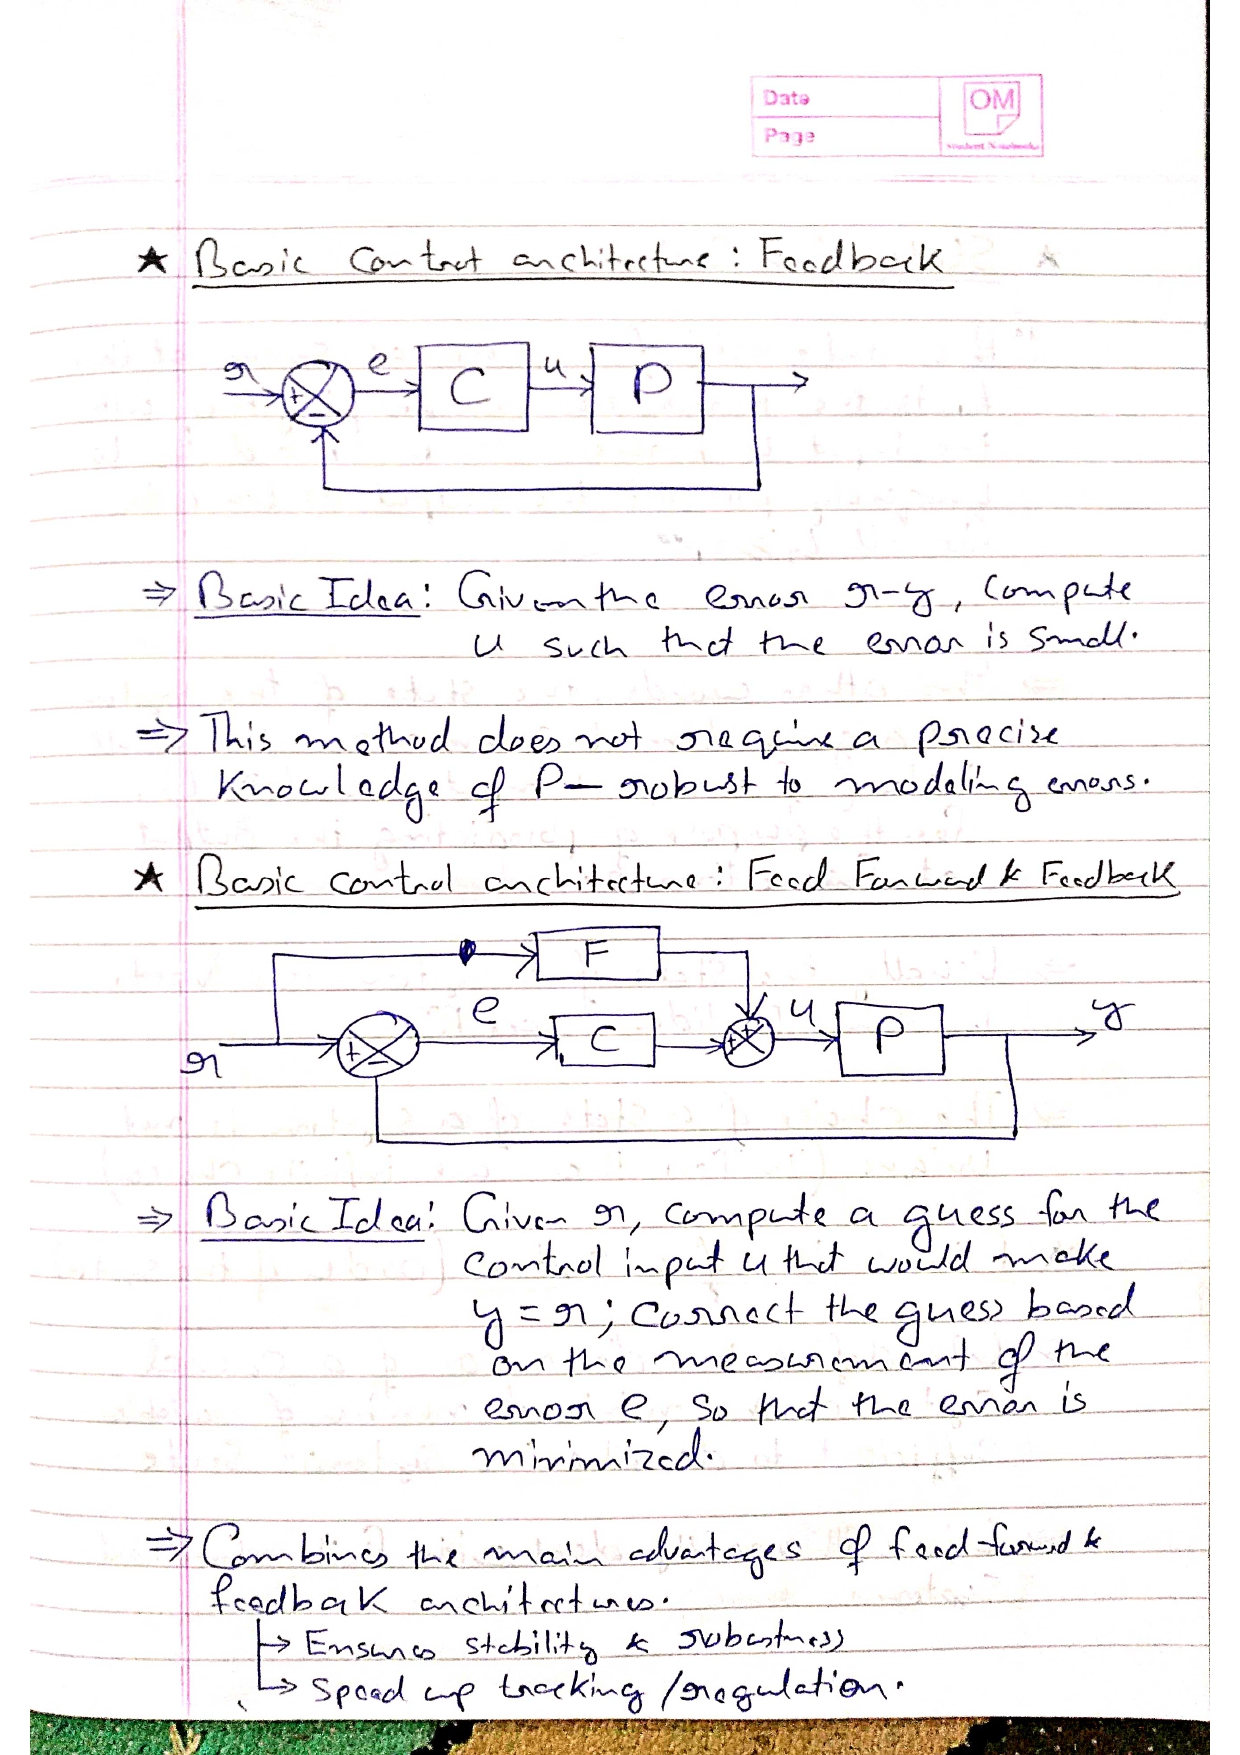 Date
Page
OM
Student Notebooks
★ Basic Control architecture : Feedback
r e C u P
+ −
⇒ Basic Idea: Given the error r-y, Compute
u such that the error is small.
⇒ This method does not require a precise
Knowledge of P — robust to modeling errors.
★ Basic control architecture : Feed Forward & Feedback
F
r + − e C + + u P y
⇒ Basic Idea: Given r, compute a guess for the
control input u that would make
y = r; correct the guess based
on the measurement of the
error e, so that the error is
minimized.
⇒ Combines the main advantages of feed-forward &
feedback architectures.
→ Ensures stability & robustness
→ Speed up tracking / regulation.